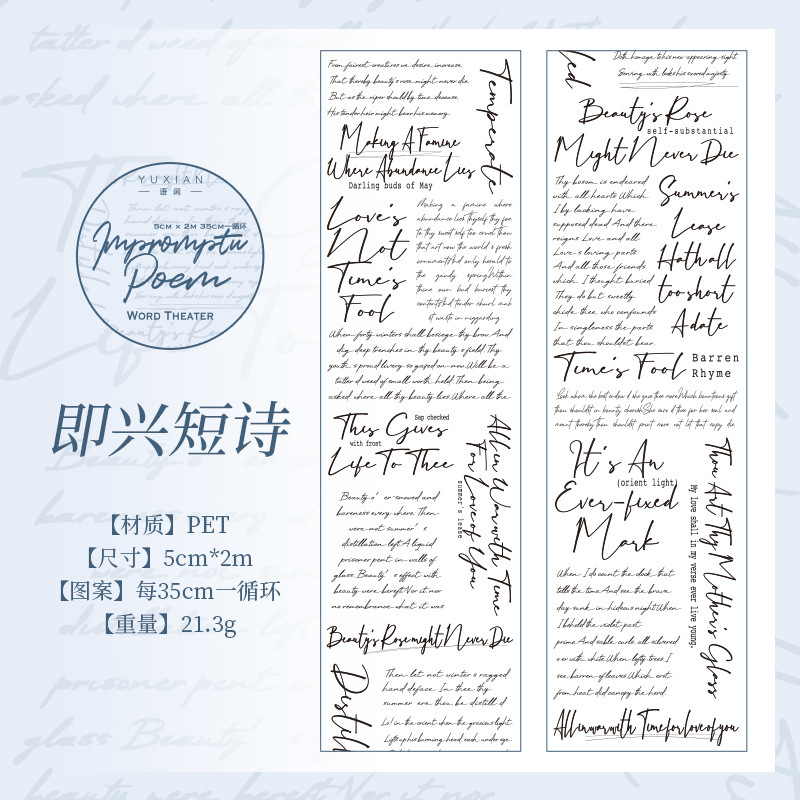 YUXIAN
语闲
5CM × 2M 35CM一循环
Impromptu
Poem
WORD THEATER
即兴短诗
【材质】PET
【尺寸】5cm*2m
【图案】每35cm一循环
【重量】21.3g
From fairest creatures we desire increase.
That thereby beauty's rose might never die.
But as the riper should by time decease.
His tender heir might bear his memory.
Temperate
Making A Famine
Where Abundance Lies
Darling buds of May
Love's
Not
Time's
Fool
Making a famine where
abundance lies Thy self thy foe
to thy sweet self too cruel Thou
that art now the world's fresh
ornament And only herald to
the gaudy spring Within
thine own bud buriest thy
content And tender churl mak
st waste in niggarding
When forty winters shall besiege thy brow. And
dig deep trenches in thy beauty's field. Thy
youth's proud livery so gazed on now. Will be a
tatter'd weed of small worth held. Then being
asked where all thy beauty lies. Where all the
This Gives
Sap checked
with frost
Life To Thee
All in War with Time
For Love of You
summer's lease
Beauty o'er snowed and
bareness every where. Then
were not summer's
distillation left. A liquid
prisoner pent in walls of
glass. Beauty's effect with
beauty were bereft. Nor it nor
no remembrance what it was
Beauty's Rose might Never Die
Distill
Then let not winter's ragged
hand deface. In thee thy
summer ere thou be distill'd
Lo! in the orient when the gracious light
Lifts up his burning head, each under eye
led
Doth homage to his new appearing sight
Serving with looks his sacred majesty
Beauty's Rose
self-substantial
Might Never Die
Thy bosom is endeared
with all hearts Which
I by lacking have
supposed dead And there
reigns Love and all
Love's loving parts
And all those friends
which. I thought buried
They do but sweetly
chide thee who confounds
In singleness the parts
that thou shouldst bear
Summer's
Lease
Hath all
too short
A date
Time's Fool
Barren
Rhyme
Look whom she best endow'd she gave thee more Which bounteous gift
thou shouldst in bounty cherish She carv'd thee for her seal and
meant thereby thou shouldst print more not let that copy die
It's An
(orient light)
Ever-fixed
Mark
Thou Art Thy Mother's Glass
My love shall in my verse ever live young.
When I do count the clock that
tells the time And see the brave
day sunk in hideous night When
I behold the violet past
prime And sable curls all silvered
o'er with white When lofty trees I
see barren of leaves Which erst
from heat did canopy the herd.
All in war with Time for love of you